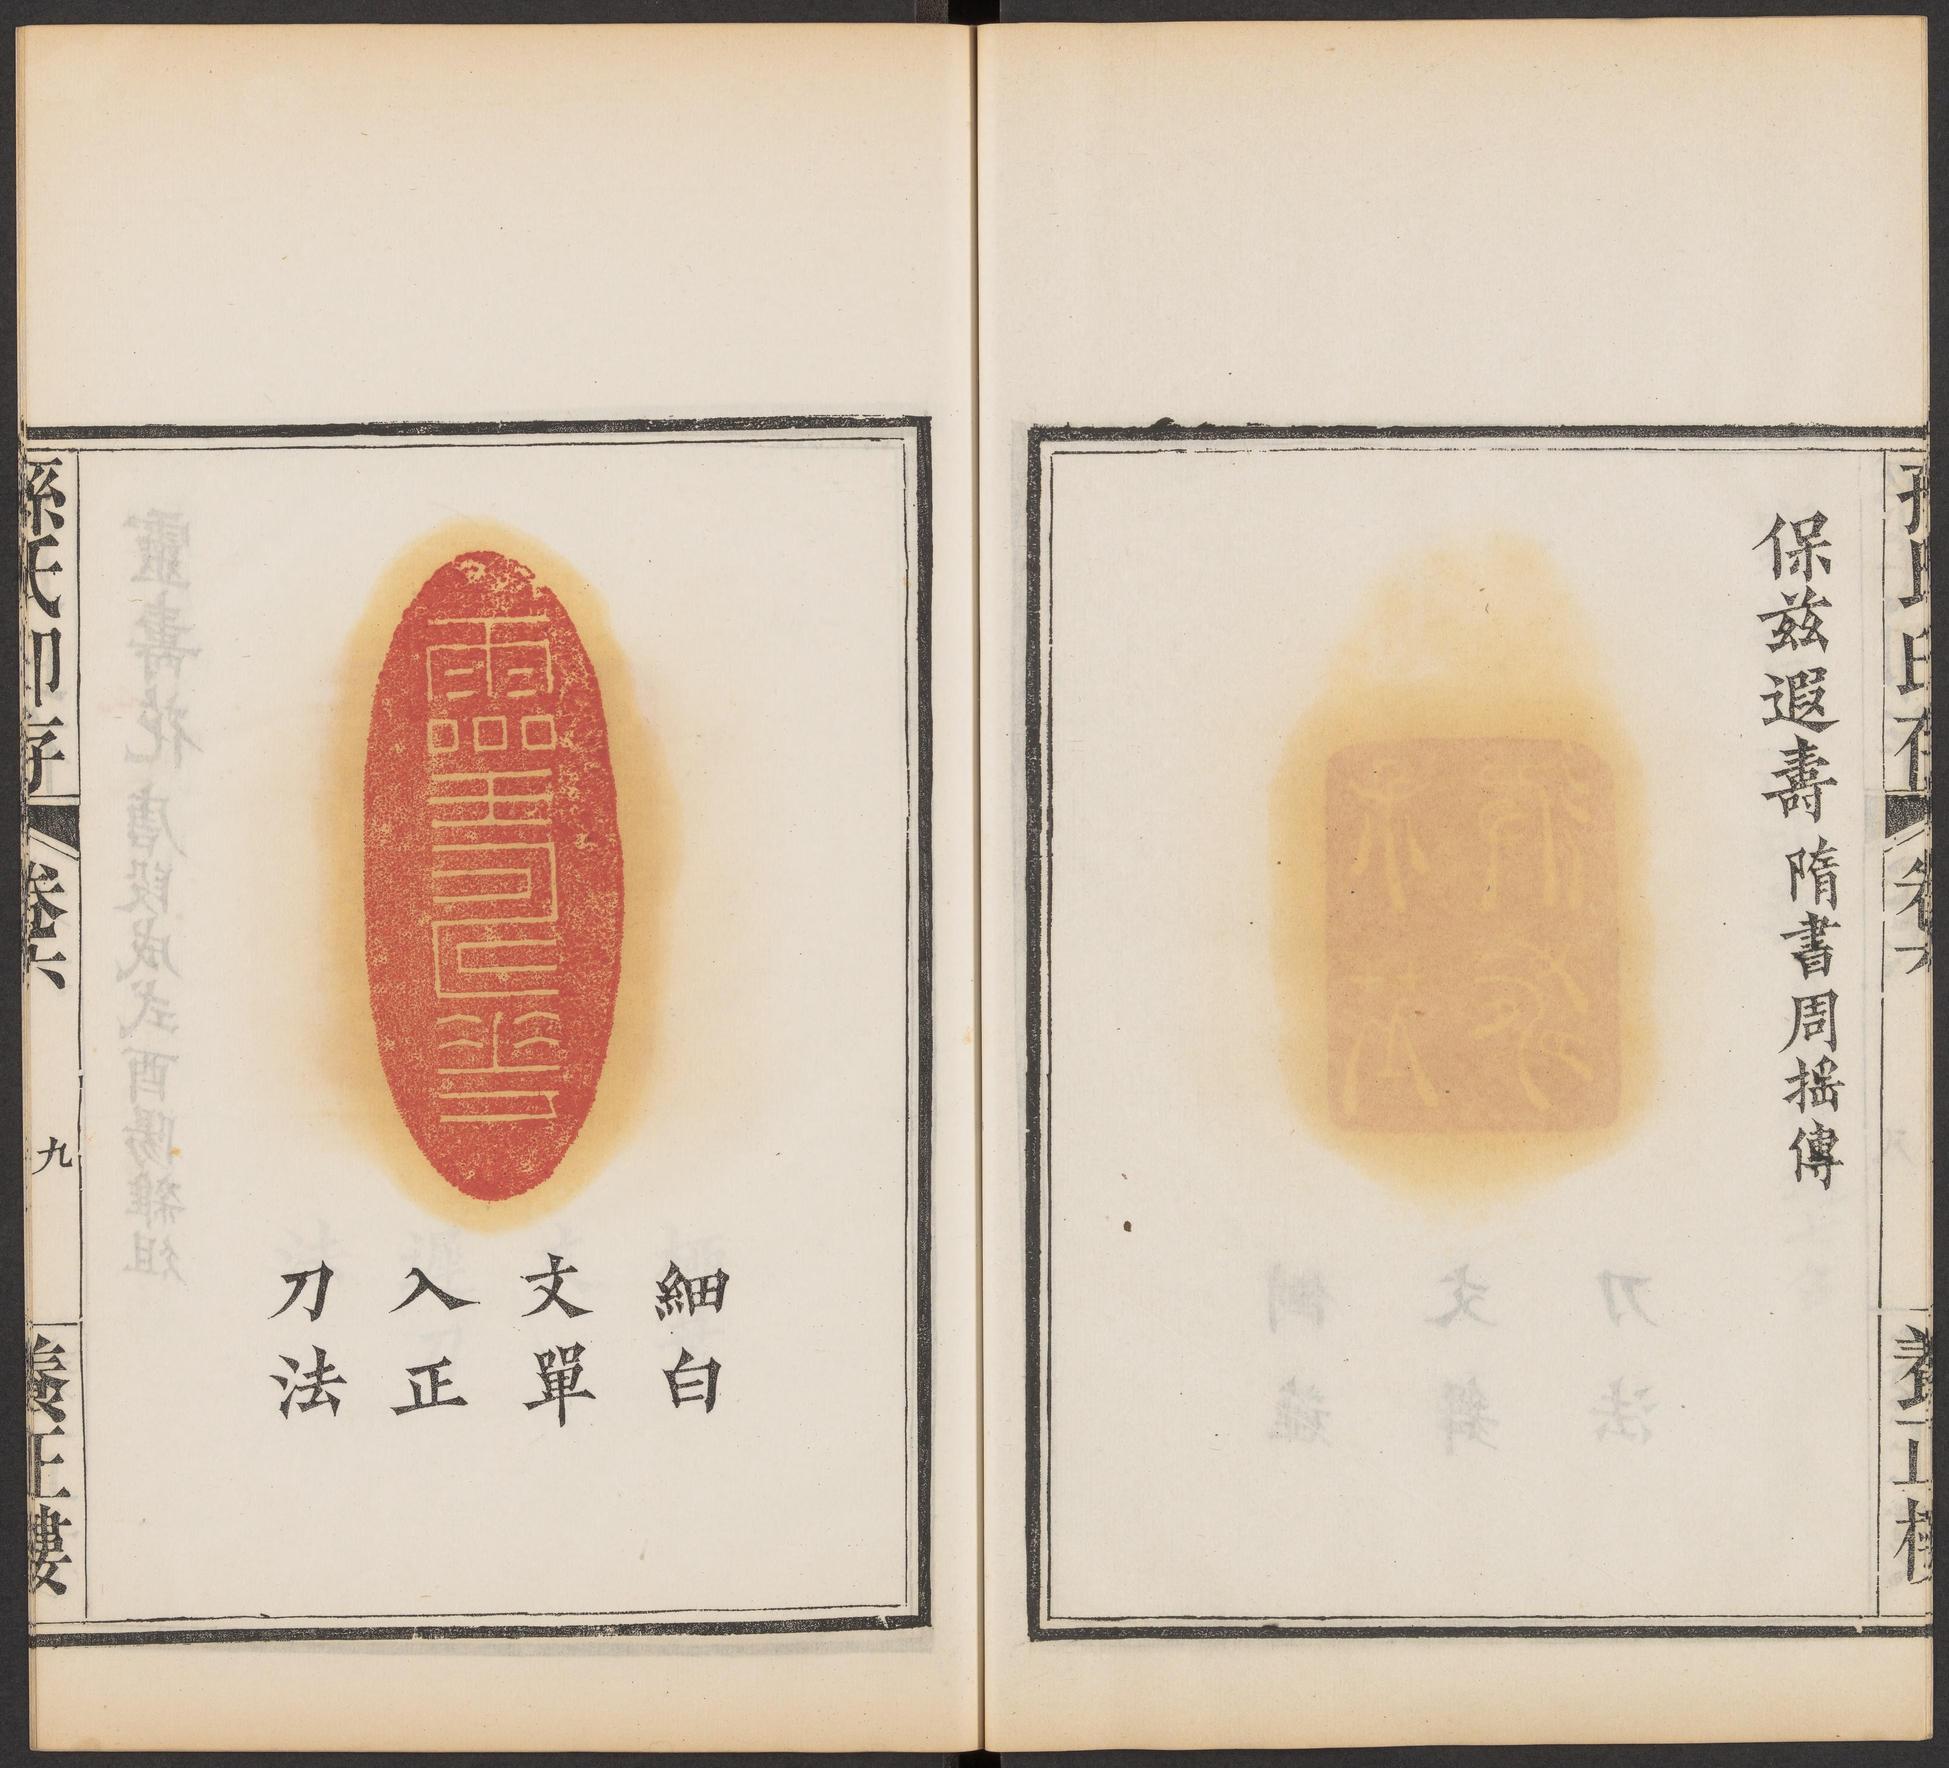 保兹遐壽 隋書周摇傳
孫氏印存 卷六 養正樓
細白
文單
入正
刀法
孫氏印存 卷六 九 養正樓